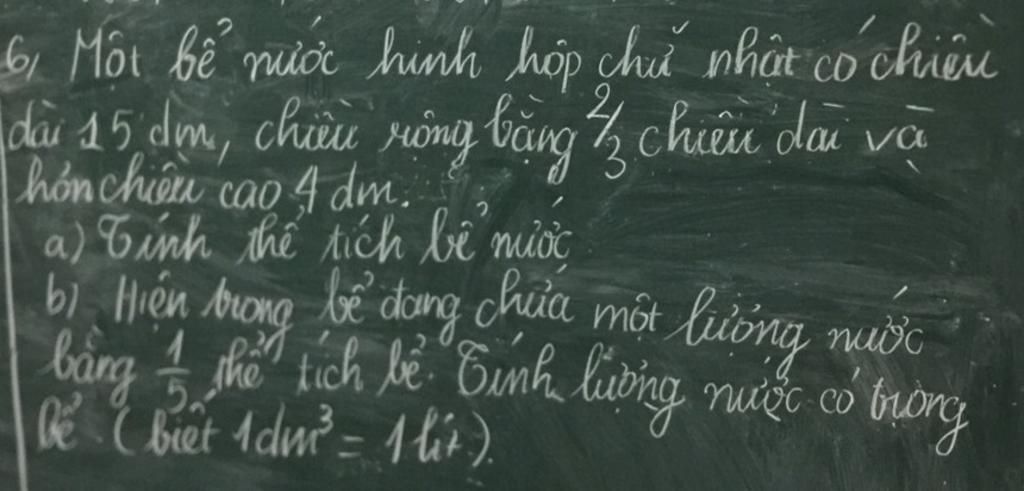 6, Một bể nước hình hộp chữ nhật có chiều
dài 15 dm, chiều rộng bằng 2/3 chiều dài và
hơn chiều cao 4 dm.
a) Tính thể tích bể nước
b) Hiện trong bể đang chứa một lượng nước
bằng 1/5 thể tích bể. Tính lượng nước có trong
bể (biết 1dm³ = 1 lít).